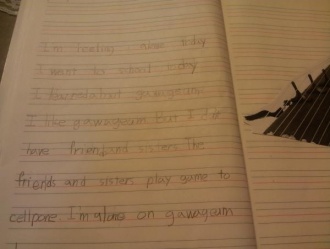 I'm feeling alone today
I want to school today
I gawageum
I like gawageum But I do
have friend and sisters The
friends and sisters play game to
cellpone. I'm alone on gawageum